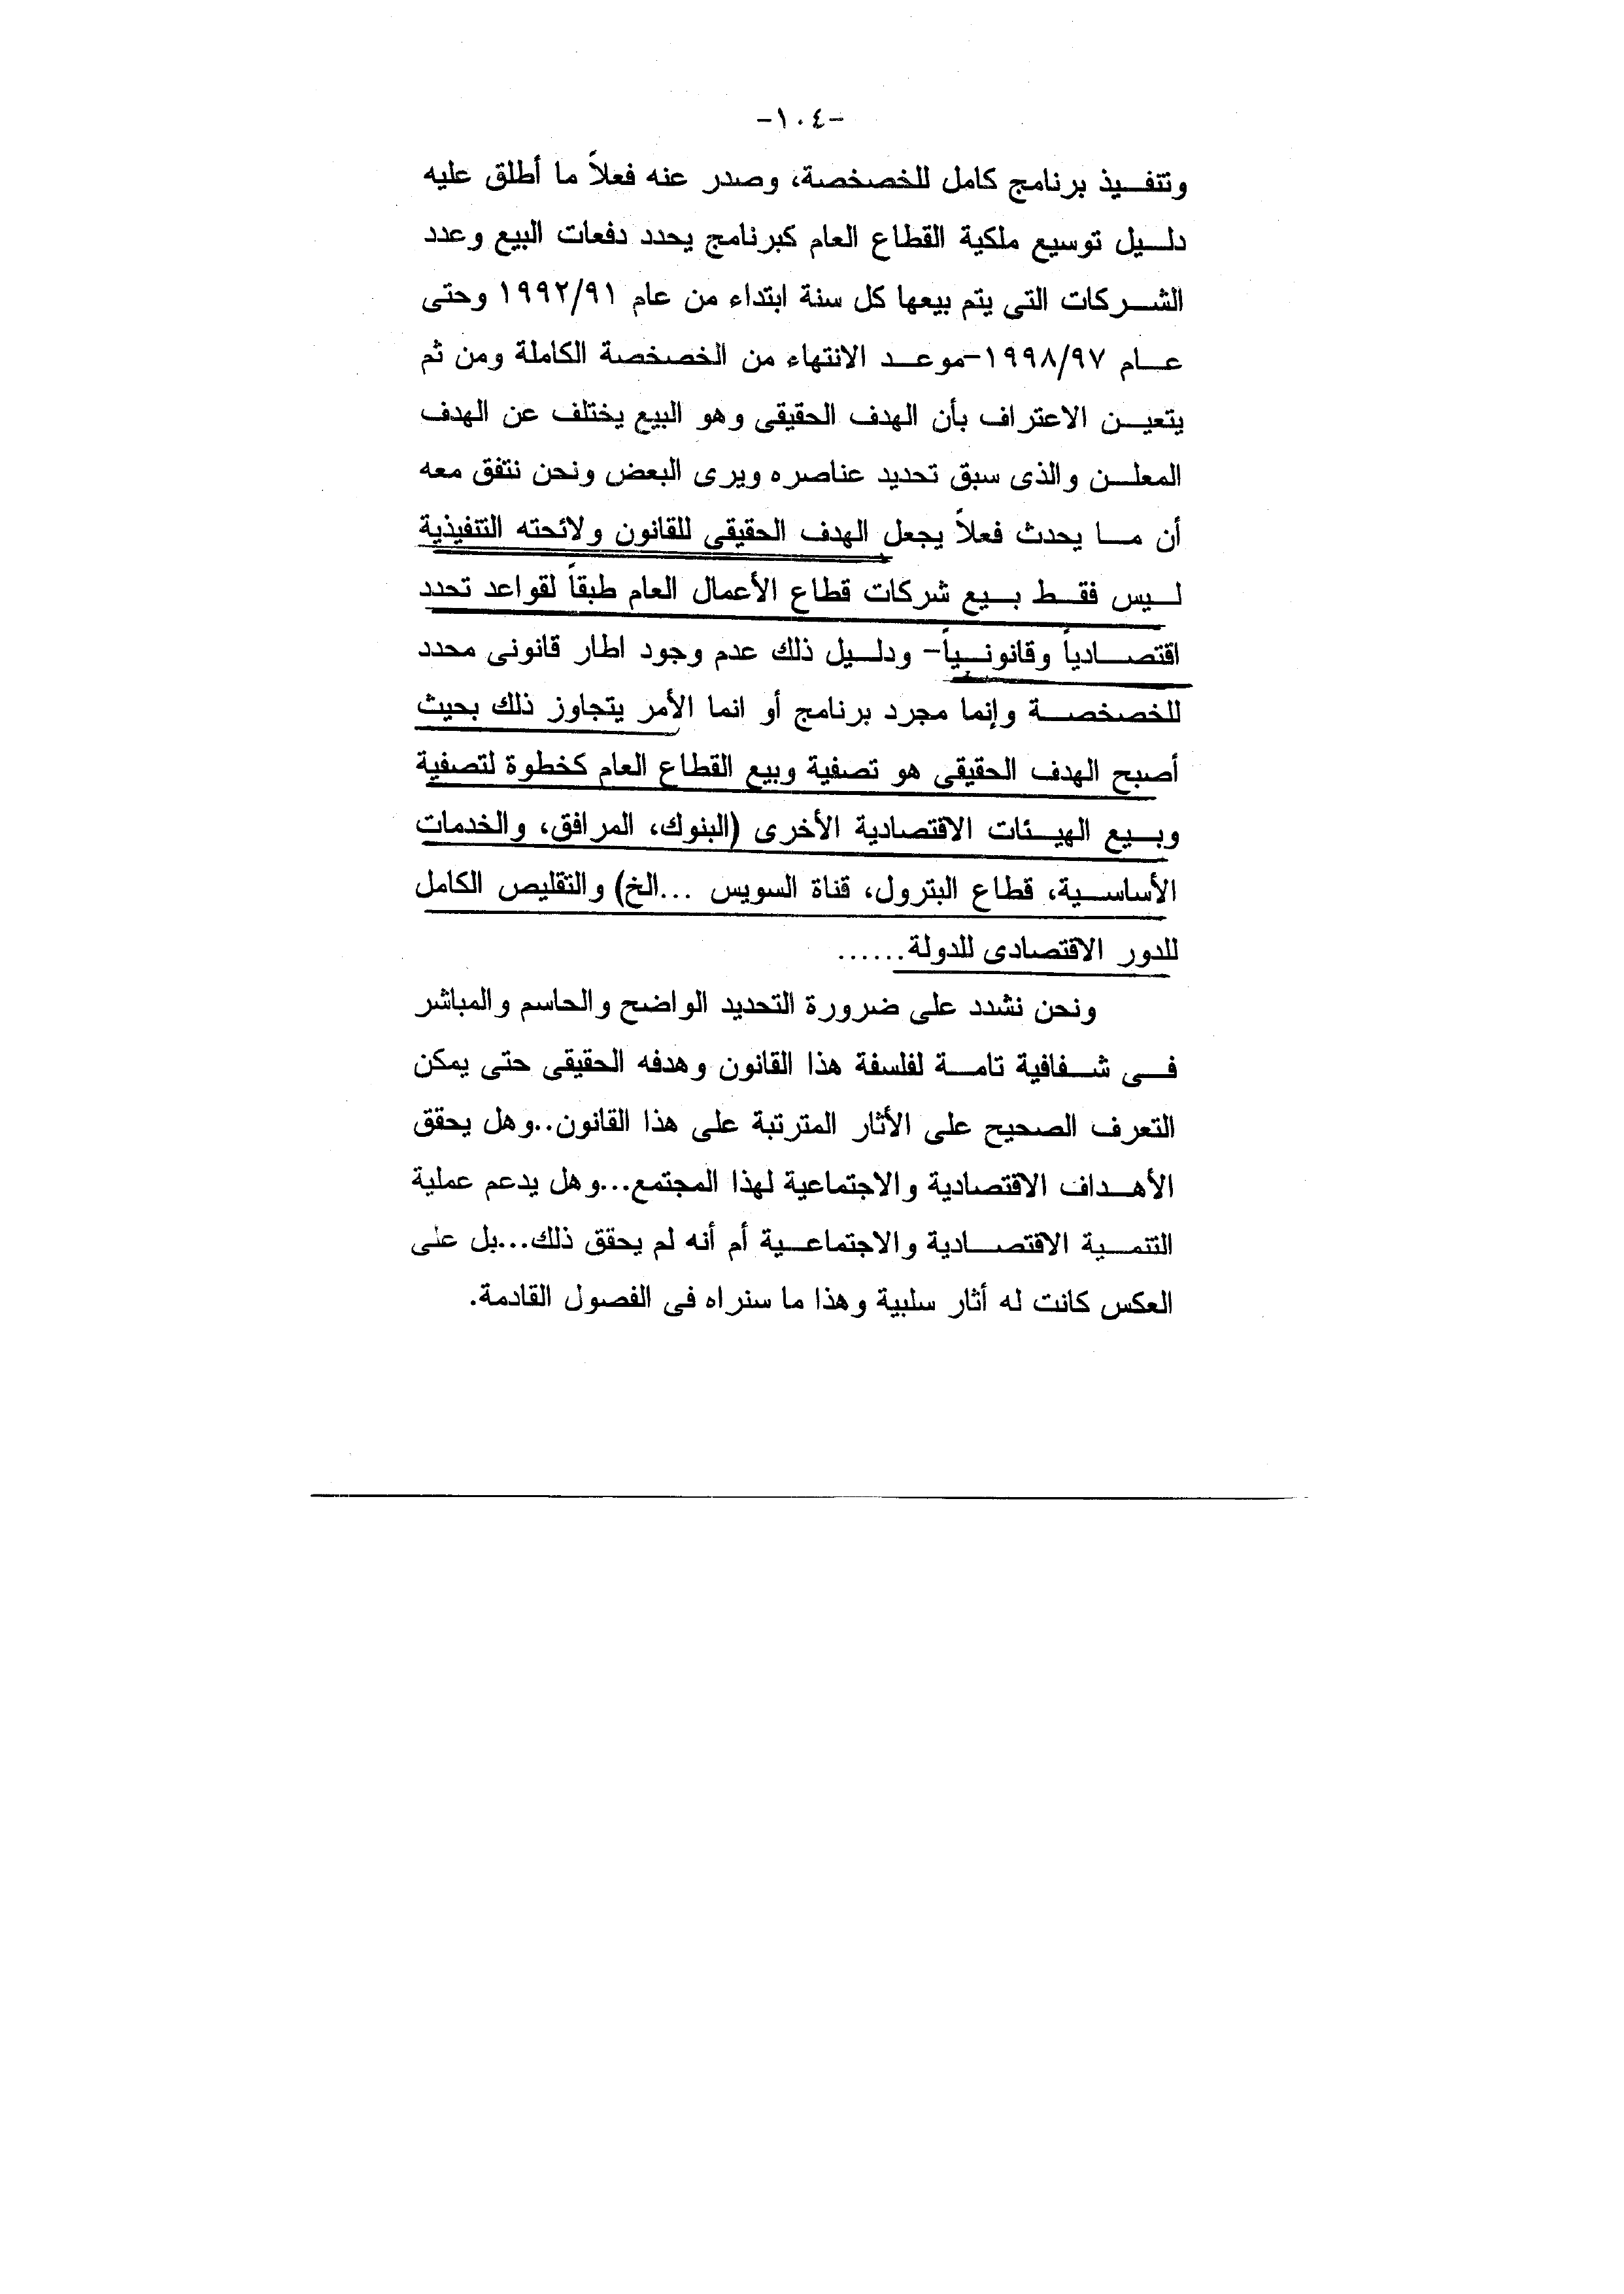 -١٠٤-
وتنفيذ برنامج كامل للخصخصة، وصدر عنه فعلاً ما أطلق عليه
دليل توسيع ملكية القطاع العام كبرنامج يحدد دفعات البيع وعدد
الشركات التى يتم بيعها كل سنة ابتداء من عام ١٩٩٢/٩١ وحتى
عام ١٩٩٨/٩٧-موعد الانتهاء من الخصخصة الكاملة ومن ثم
يتعين الاعتراف بأن الهدف الحقيقى وهو البيع يختلف عن الهدف
المعلن والذى سبق تحديد عناصره ويرى البعض ونحن نتفق معه
أن ما يحدث فعلاً يجعل الهدف الحقيقى للقانون ولائحته التنفيذية
ليس فقط بيع شركات قطاع الأعمال العام طبقاً لقواعد تحدد
اقتصادياً وقانونياً- ودليل ذلك عدم وجود اطار قانونى محدد
للخصخصة وإنما مجرد برنامج أو انما الأمر يتجاوز ذلك بحيث
أصبح الهدف الحقيقى هو تصفية وبيع القطاع العام كخطوة لتصفية
وبيع الهيئات الاقتصادية الأخرى (البنوك، المرافق، والخدمات
الأساسية، قطاع البترول، قناة السويس ...الخ) والتقليص الكامل
للدور الاقتصادى للدولة......
ونحن نشدد على ضرورة التحديد الواضح والحاسم والمباشر
فى شفافية تامة لفلسفة هذا القانون وهدفه الحقيقى حتى يمكن
التعرف الصحيح على الأثار المترتبة على هذا القانون..وهل يحقق
الأهداف الاقتصادية والاجتماعية لهذا المجتمع...وهل يدعم عملية
التنمية الاقتصادية والاجتماعية أم أنه لم يحقق ذلك...بل على
العكس كانت له أثار سلبية وهذا ما سنراه فى الفصول القادمة.